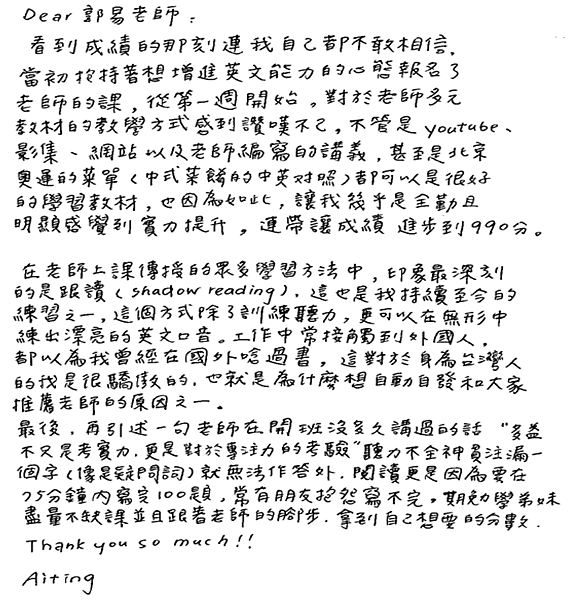 Dear 郭易老師:
看到成績的那刻連我自己都不敢相信,
當初抱持著想增進英文能力的心態報名了
老師的課,從第一週開始,對於老師多元
教材的教學方式感到讚嘆不已,不管是youtube、
影集、網站以及老師編寫的講義,甚至是北京
奧運的菜單(中式菜餚的中英对照)都可以是很好
的學習教材,也因為如此,讓我幾乎是全勤且
明顯感覺到實力提升,連帶讓成績進步到990分。
在老師上課傳授的眾多學習方法中,印象最深刻
的是跟讀(shadow reading),這也是我持續至今的
練習之一,這個方式除了訓練聽力,更可以在無形中
練出漂亮的英文口音。工作中常接觸到外國人,
都以為我曾經在國外唸過書,這對於身為台灣人
的我是很驕傲的,也就是為什麼想自動自發和大家
推薦老師的原因之一。
最後,再引述一句老師在開班沒多久講過的話 "多益
不只是考實力,更是對於專注力的考驗"聽力不全神貫注漏一
個字(像是疑問詞)就無法作答外,閱讀更是因為要在
75分鐘內寫完100題,常有朋友抱怨寫不完。期勉學弟妹
盡量不缺課並且跟著老師的腳步,拿到自己想要的分數.
Thank you so much!!
Aiting